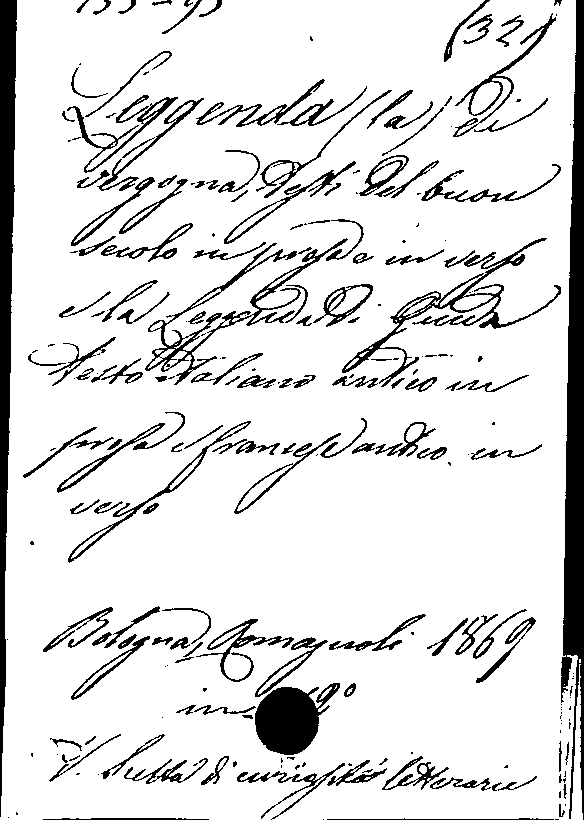 133-93
(32)
Leggenda (la) di
vergogna, testi del buon
secolo in prosa e in verso
e la Leggenda di Giuda
testo italiano antico in
prosa e francese antico in
verso
Bologna, Romagnoli 1869
in 12°
V. Scelta di curiosità letterarie